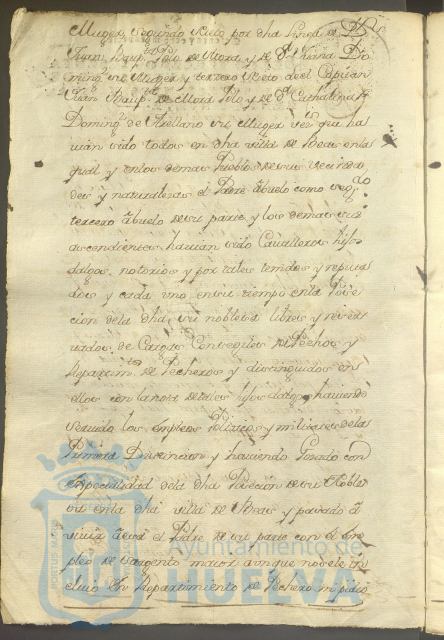 Muger, segundo Nieto por dha Linea de Dn
Juan Baupta Polo de Mora, y de Da Juana Do
ming.z su Muger y tercero Nieto del Capitan
Juan Baupta de Mora Polo y de Da Cathalina
Doming.z de Arellano su Muger vezs que ha
vian sido todos en dha villa de Beas en la
qual y en los demas Pueblos de sus vecinda
des y naturalezas el Padre abuelo como segdo
tercero abuelo de su parte y los demas sus
ascendientes havian sido Cavalleros hijos
dalgos notorios y por tales tenidos y reputa
dos y cada uno en su tiempo en la Pose
cion de la dha su nobleza libres y reser
uados de Cargas Consegiles de Pechos y
Repartimtos de Pecheros y distinguidos en
ellos con la nota de tales hijos dalgos haviendo
servido los empleos Politicos y militares de la
Primera Distincion y haviendo Gosado con
especialidad de la dha Posecion de su Noble
sa en la dha villa de Beas y pasado a
vivir a esta el Padre de su parte con el Em
pleo de Sargento maior aunque no se le in
cluio en Repartimiento de Pechero ni pidio
Ayuntamiento de
HUELVA
PORTUS MARIS